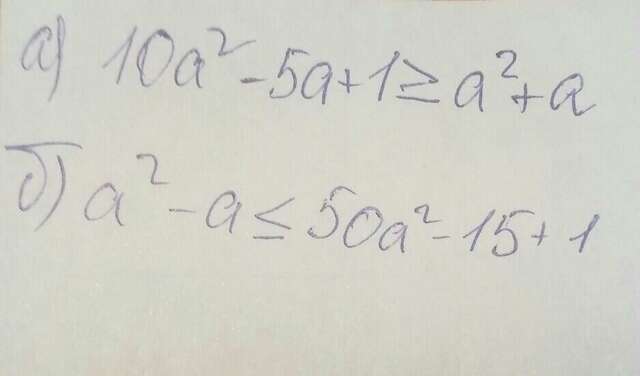 а) 10a² - 5a + 1 ≥ a² + a
б) a² - a ≤ 50a² - 15 + 1